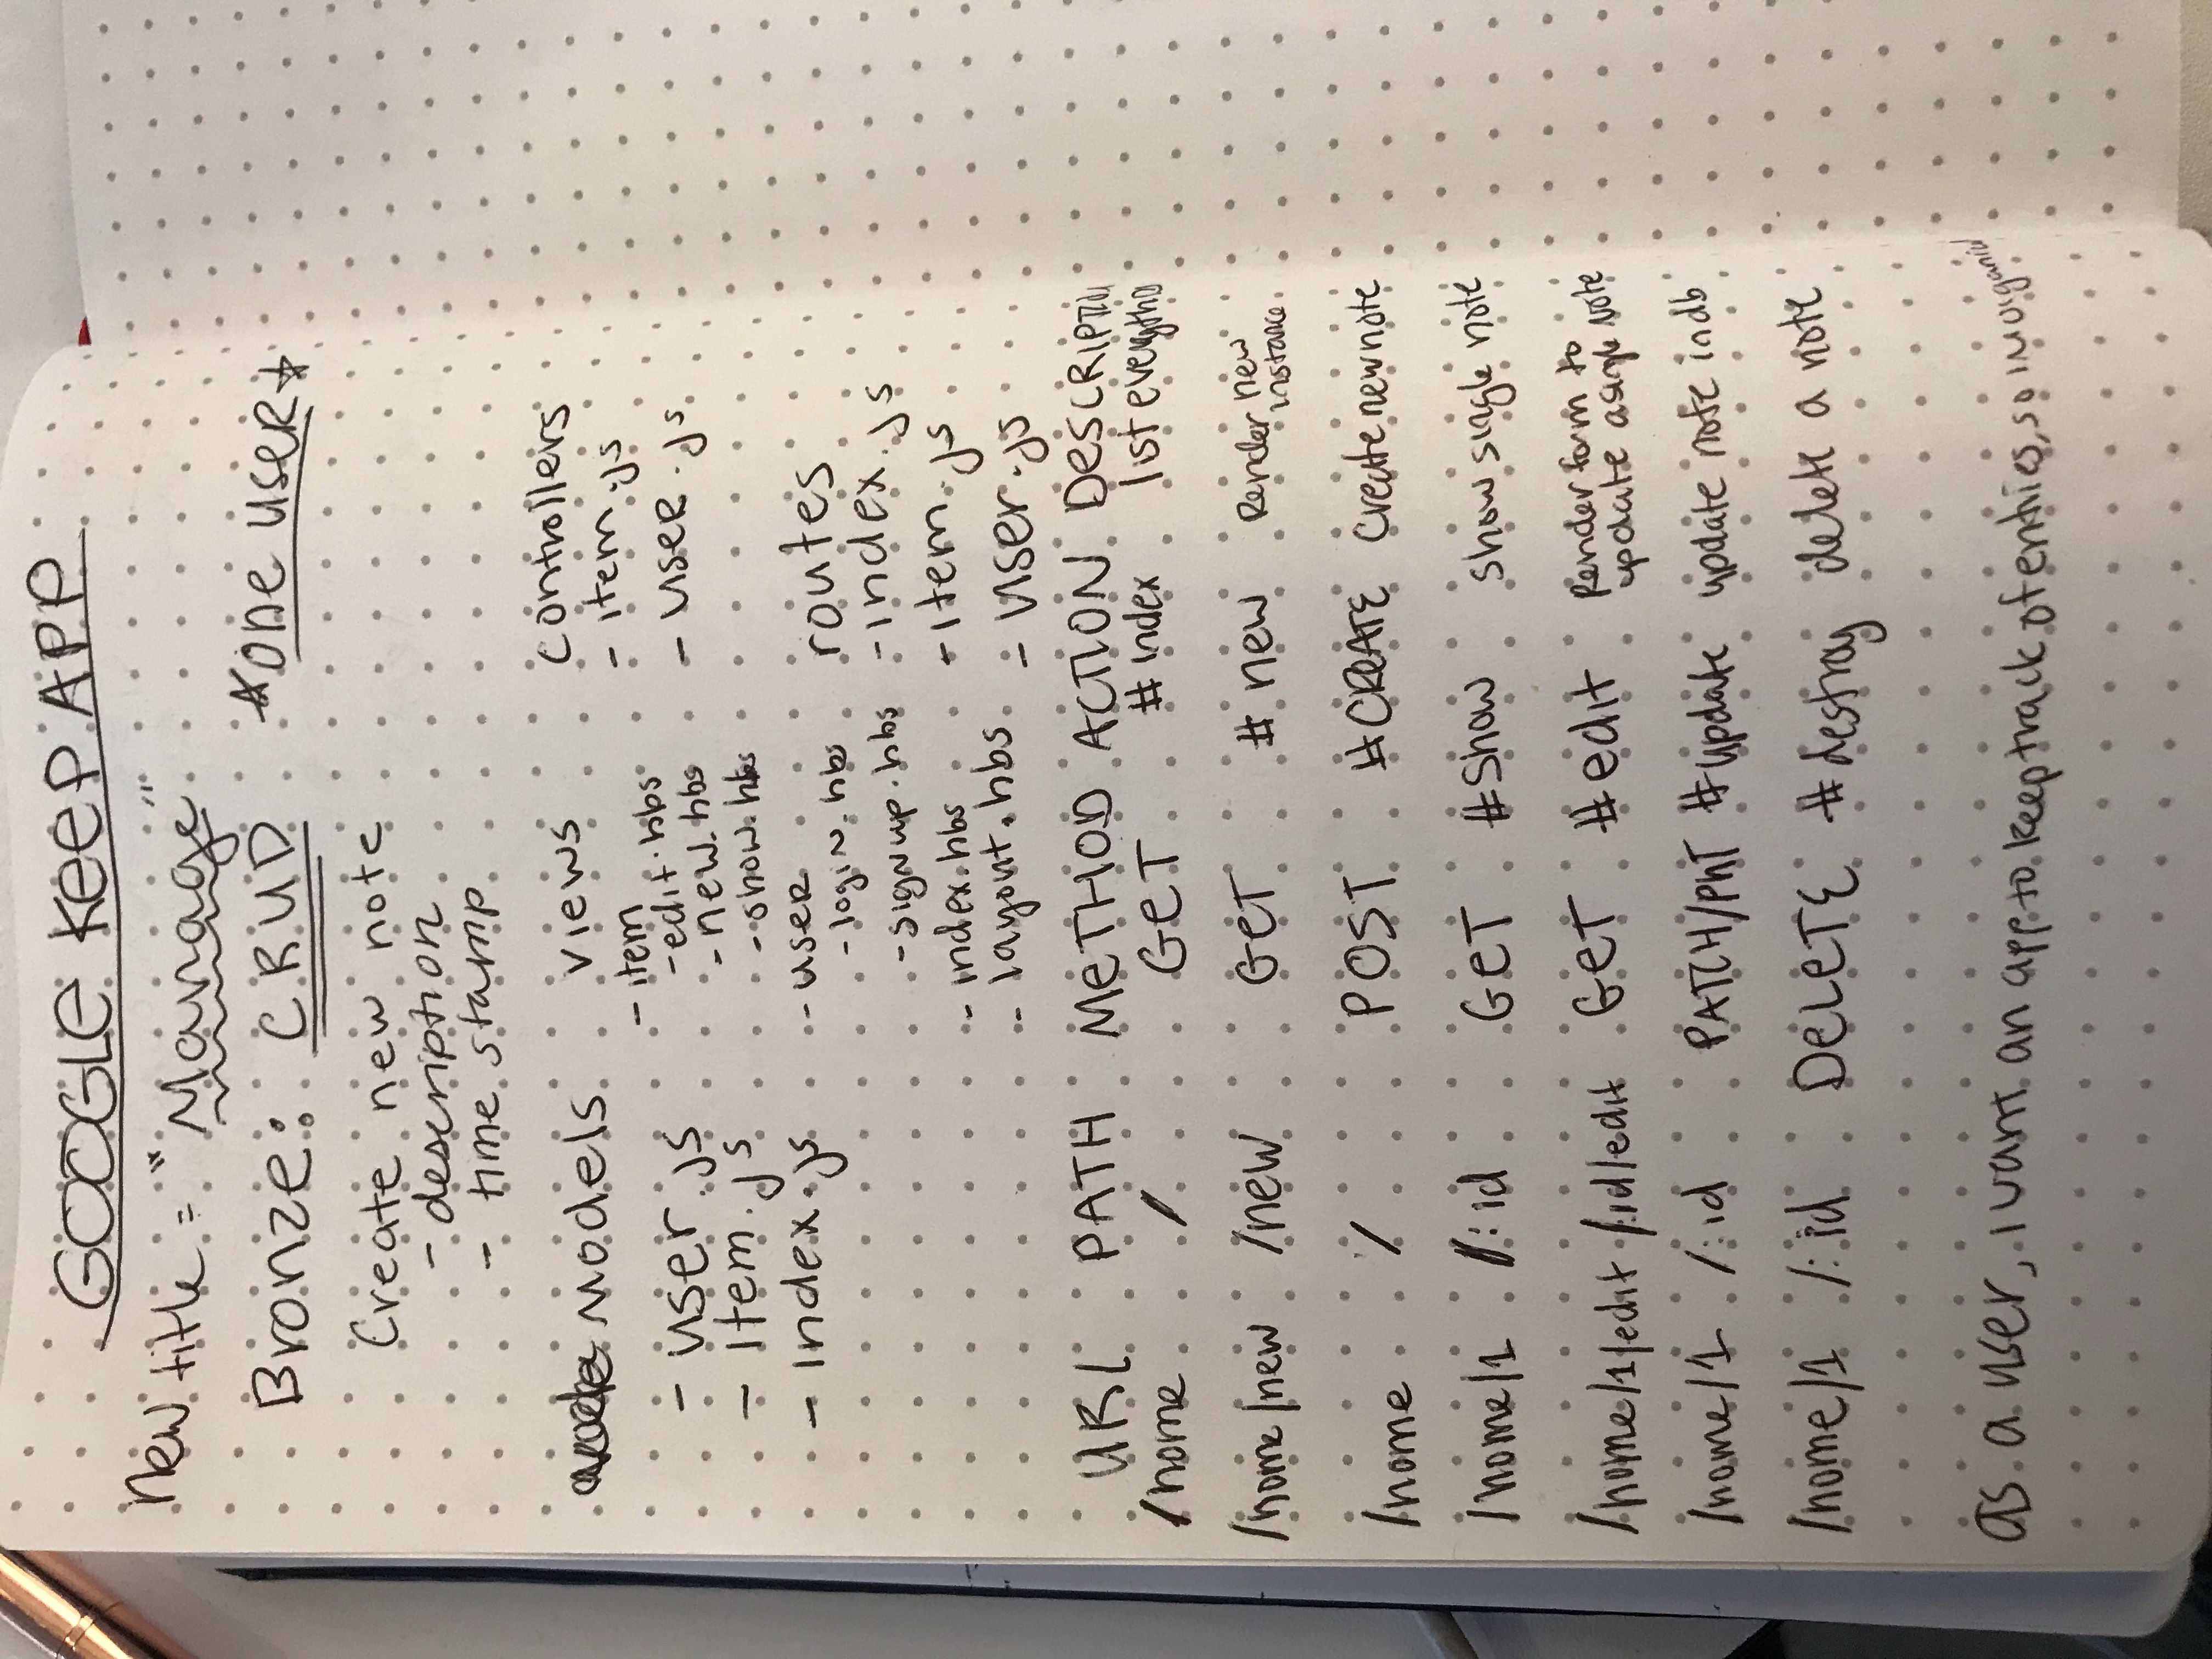 GOOGLE KEEP APP
New title = "Manage"
Bronze: CRUD *one user*
Create new note
- description
- time stamp
Models
- user.js
- Item.js
- Index.js
views
- item
- edit.hbs
- new.hbs
- show.hbs
- user
- login.hbs
- signup.hbs
- index.hbs
- layout.hbs
controllers
- item.js
- user.js
routes
- index.js
- item.js
- user.js
URL PATH METHOD ACTION DESCRIPTION
/home / GET #index list everything
/home/new /new GET #new Render new
instance
/home / POST #CREATE create new note
/home/1 /:id GET #show show single note
/home/1/edit /:id/edit GET #edit Render form to
update a single note
/home/1 /:id PATCH/PUT #update update note in db
/home/1 /:id DELETE #destroy delete a note
as a user, I want an app to keep track of entries, so